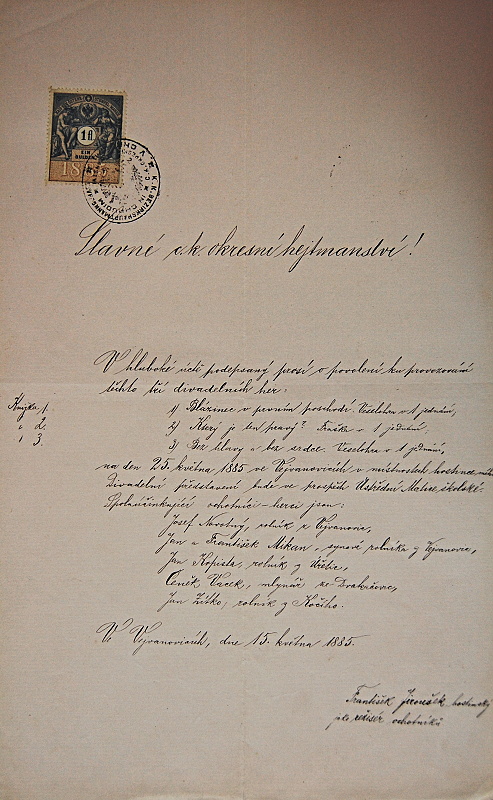 1 fl
EIN GULDEN
18
K.K. BEZIRKSHAUPTMANNSCHAFT IN CHRUDIM
Slavné c.k. okresní hejtmanství!
V hluboké úctě podepsaný prosí o povolení ku provozování
těchto tří divadelních her:
Knížka 1. 1) Blázinec v prvním poschodí. Veselohra v 1 jednání,
" 2. 2) Který je ten pravý? Fraška v 1 jednání.
" 3. 3) Bez hlavy a bez srdce. Veselohra v 1 jednání,
na den 25. května 1885 ve Vejvanovicích v místnostech hostince
Divadelní představení bude ve prospěch Ústřední Matice školské.
Spoluúčinkující ochotníci-herci jsou:
Josef Novotný, rolník z Vejvanovic,
Jan a František Mikan, synové rolníka z Vejvanovic,
Jan Kopista, rolník z Úhřetic,
Čeněk Vacek, mlynář ze
Jan Zítko, rolník z Kočího.
Ve Vejvanovicích, dne 15. května 1885.
František Jiroušek hostinský
jako režisér ochotníků